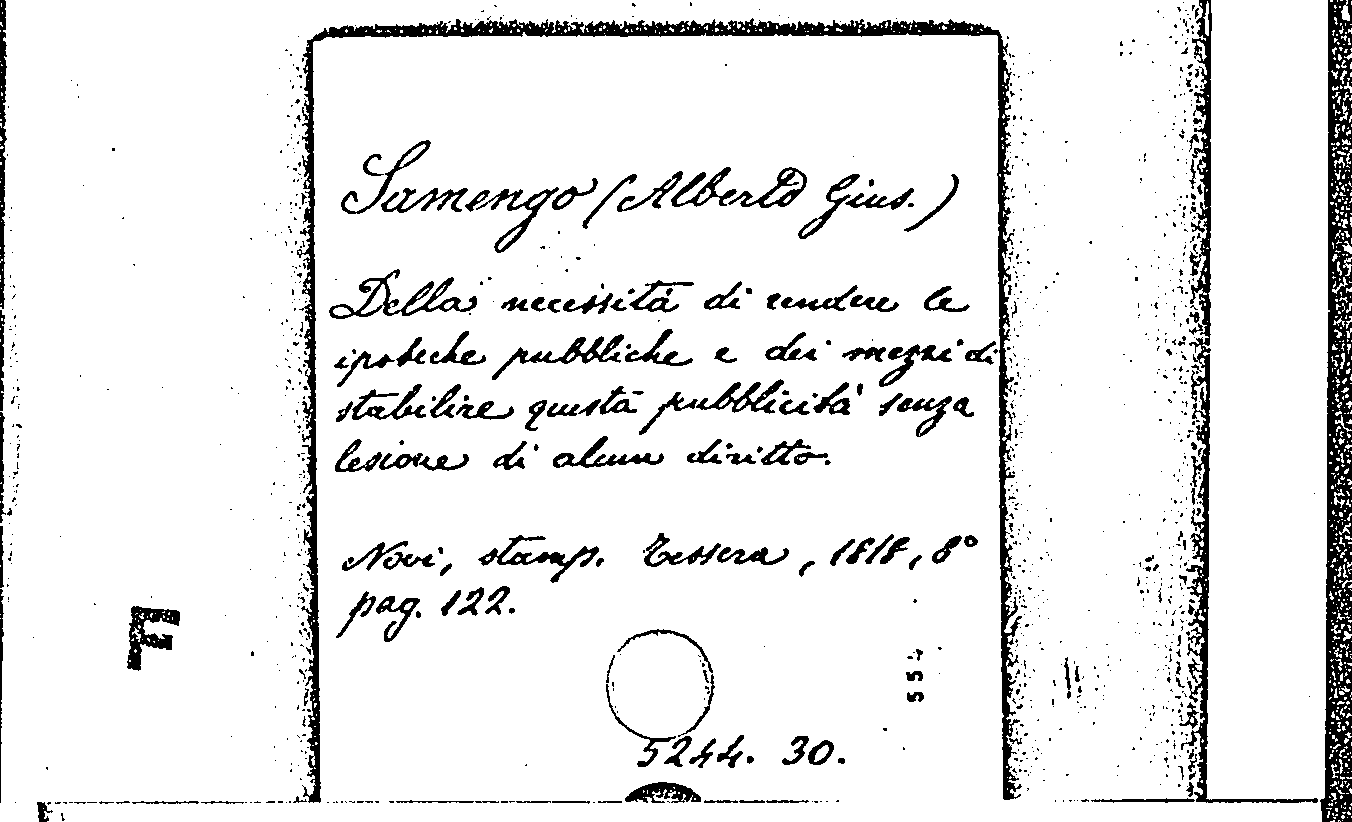 Samengo (Alberto Gius.)
Della necessità di rendere le
ipoteche pubbliche e dei mezzi di
stabilire questa pubblicità senza
lesione di alcun diritto.
Novi, stamp. Tessera, 1818, 8°
pag. 122.
F
554
5244. 30.